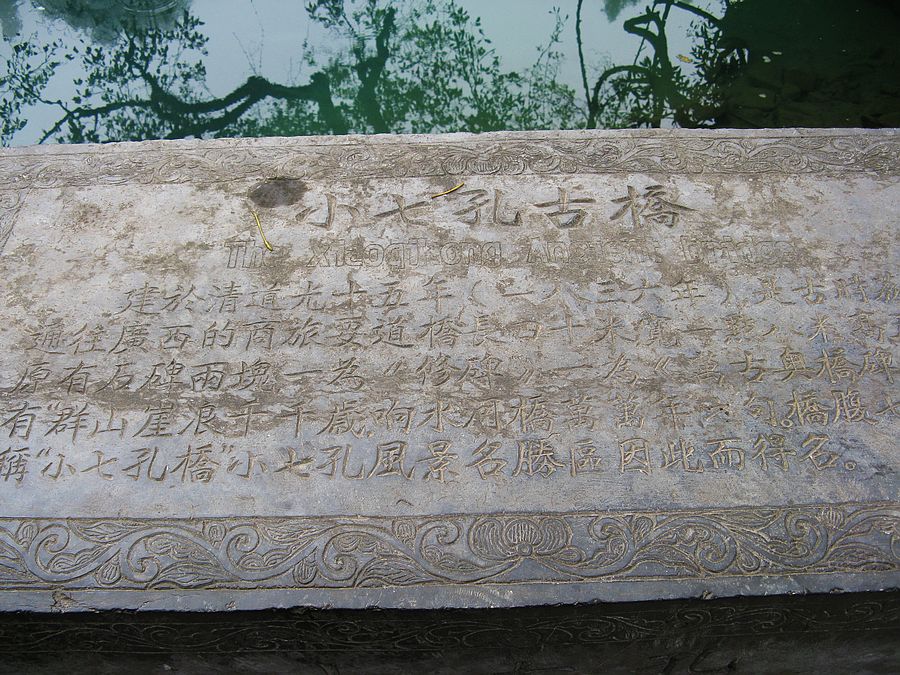 小七孔古橋
The Xiaoqikong Ancient Bridge
建於清道光十五年(一八三六年)是古時
通往廣西的商旅要道橋長四十米寬一點八米高
原有石碑兩塊一為《修碑》一為《萬古興橋碑
有"群山崖浪千千歲响水河橋萬萬年"句。橋腹七
稱"小七孔橋"小七孔風景名勝區因此而得名。